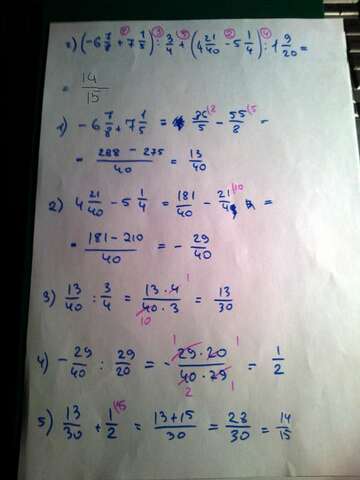 2) (-6 7/8 + 7 1/5) : 3/4 + (4 21/40 - 5 1/4) : 1 9/20 =
= 14/15
1) -6 7/8 + 7 1/5 = 36/5 - 55/8 =
= 288 - 275/40 = 13/40
2) 4 21/40 - 5 1/4 = 181/40 - 21/4 =
= 181 - 210/40 = - 29/40
3) 13/40 : 3/4 = 13 · 4/40 · 3 = 13/30
4) - 29/40 : 29/20 = - 29 · 20/40 · 29 = 1/2
5) 13/30 + 1/2 = 13 + 15/30 = 28/30 = 14/15